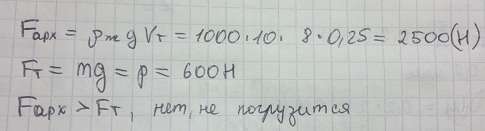 Fарх = ρж g Vт = 1000·10· 8·0,25 = 2500(Н)
Fт = mg = p = 600Н
Fарх > Fт, нет, не погрузится